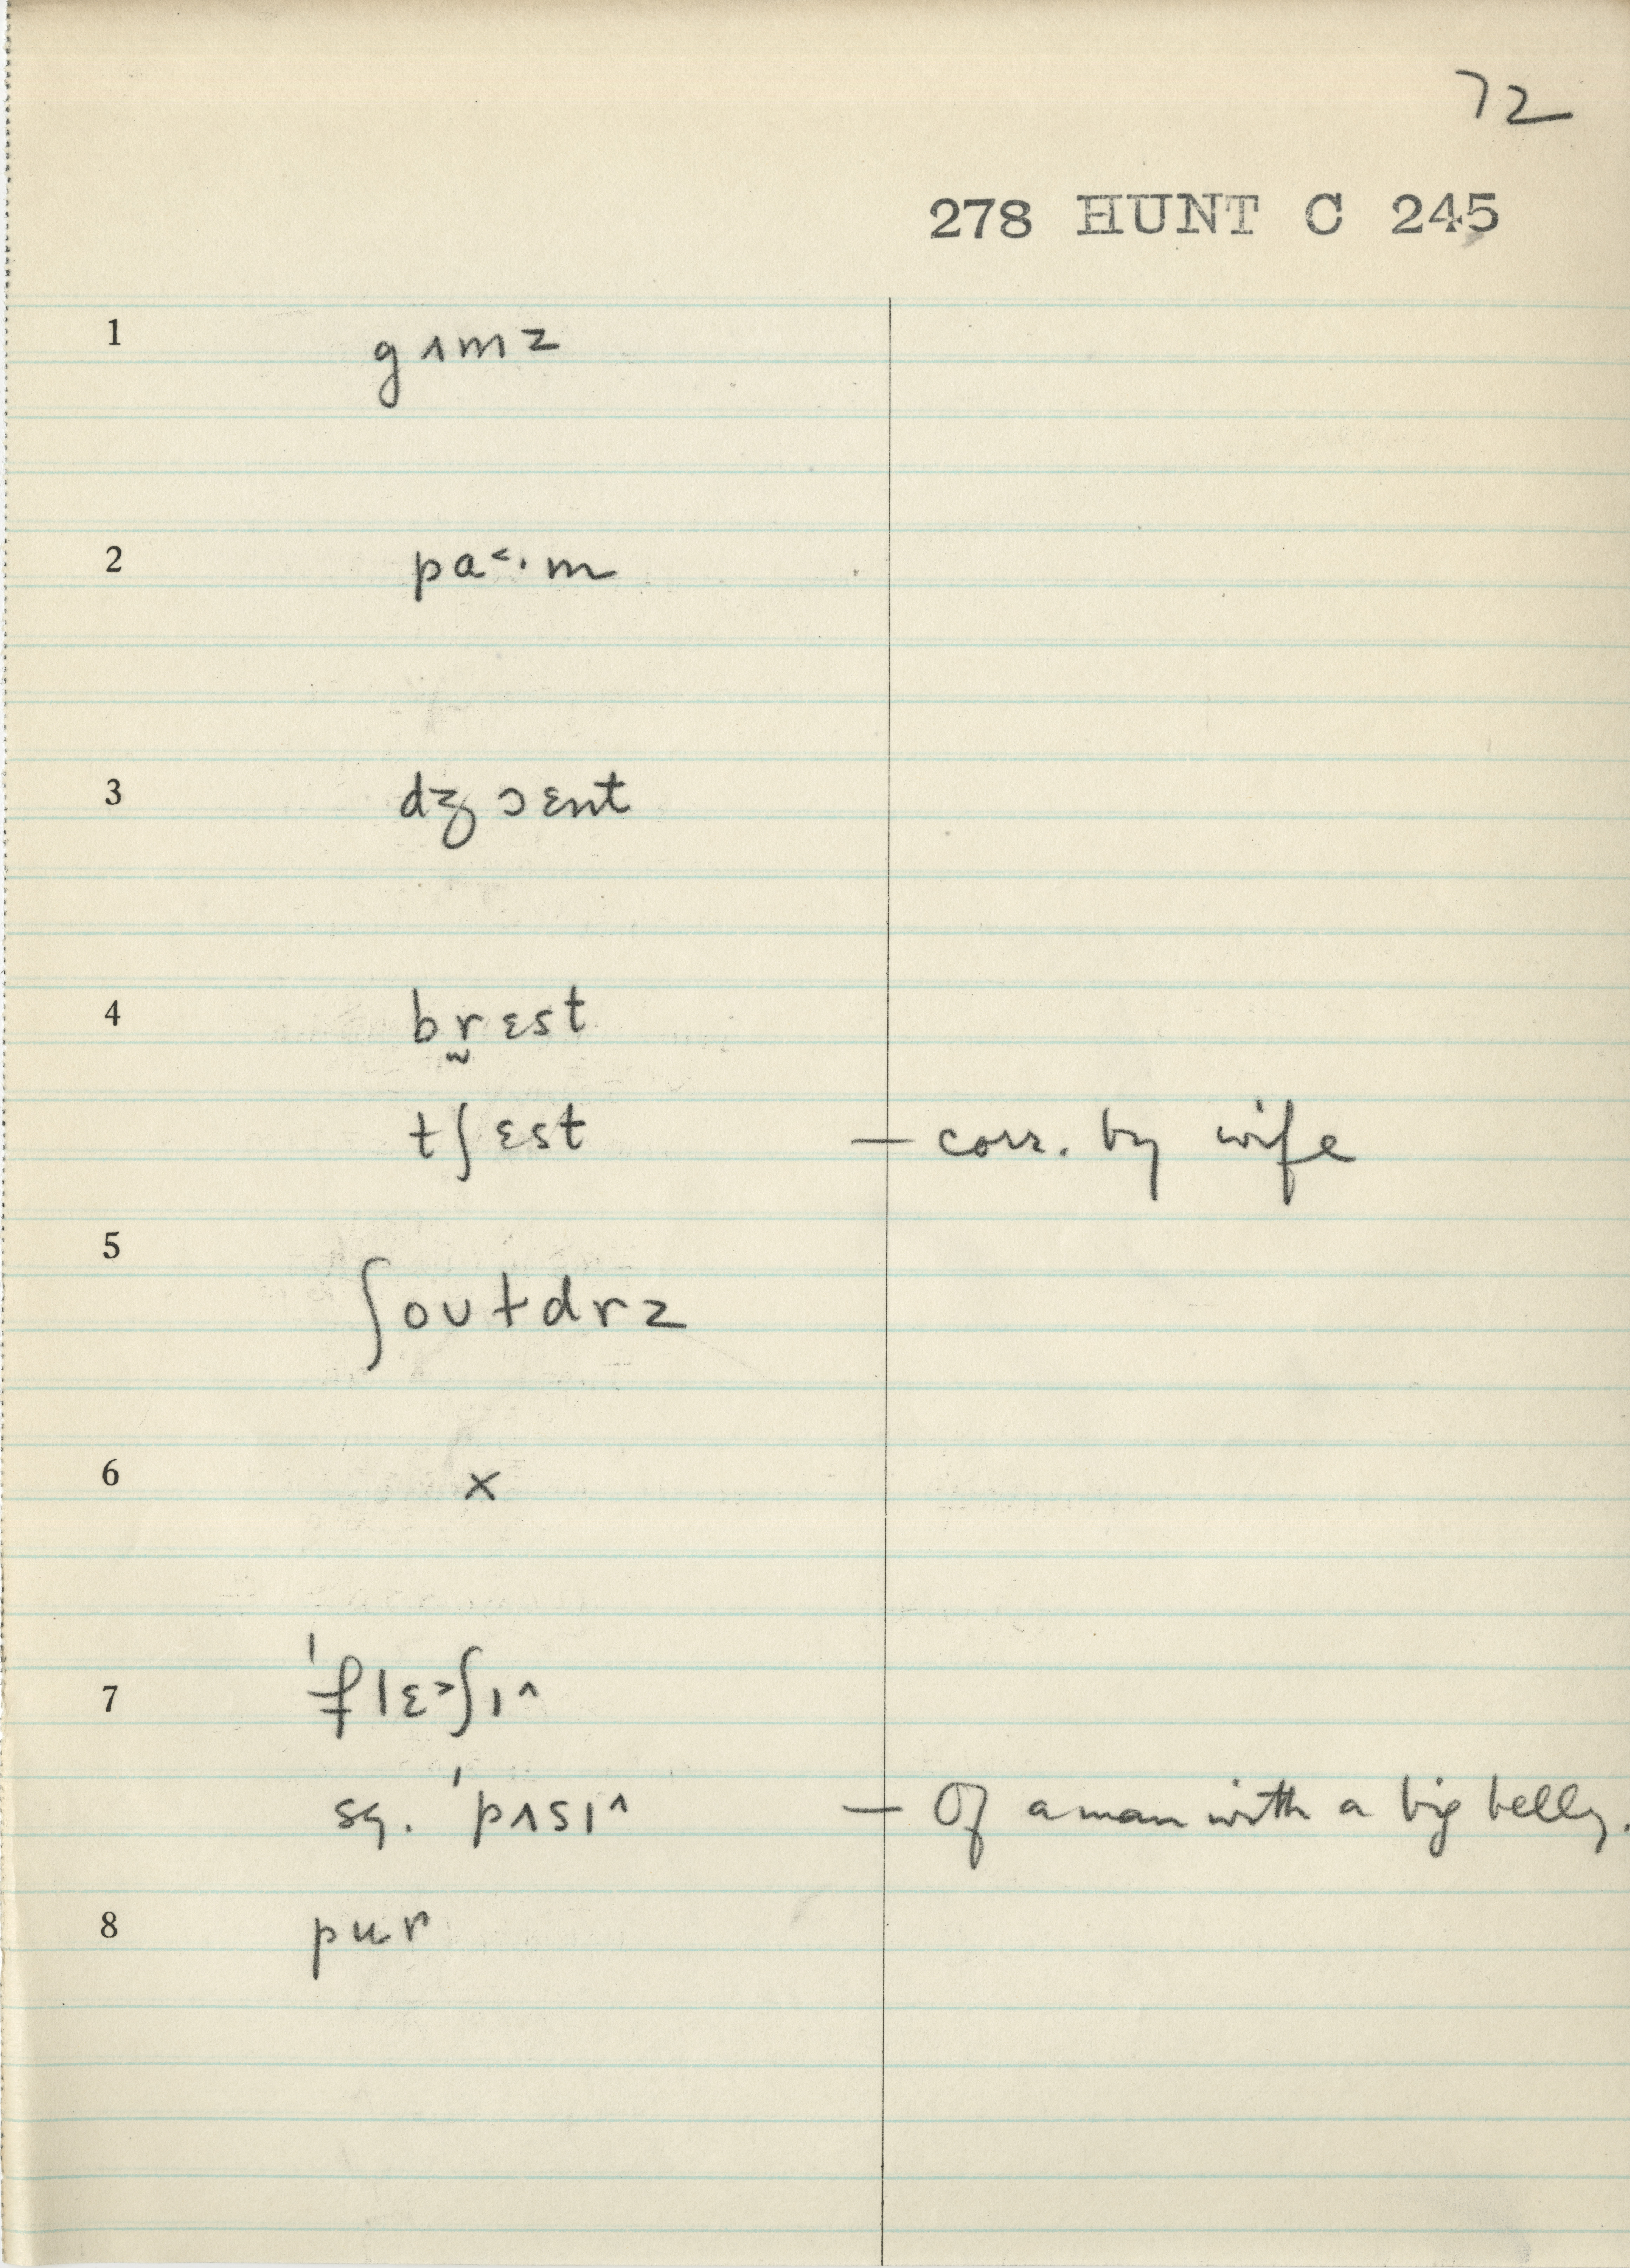 72
278 HUNT C 245
1 gʌmz
2 pa˂·m
3 dʒɔɛnt
4 br̰ɛst
tʃɛst — corr. by wife
5 ʃoʊɫdrz
6 x
7 'flɛ˃ʃɪ^
sq. 'pʌsɪ^ — Of a man with a big belly.
8 pur